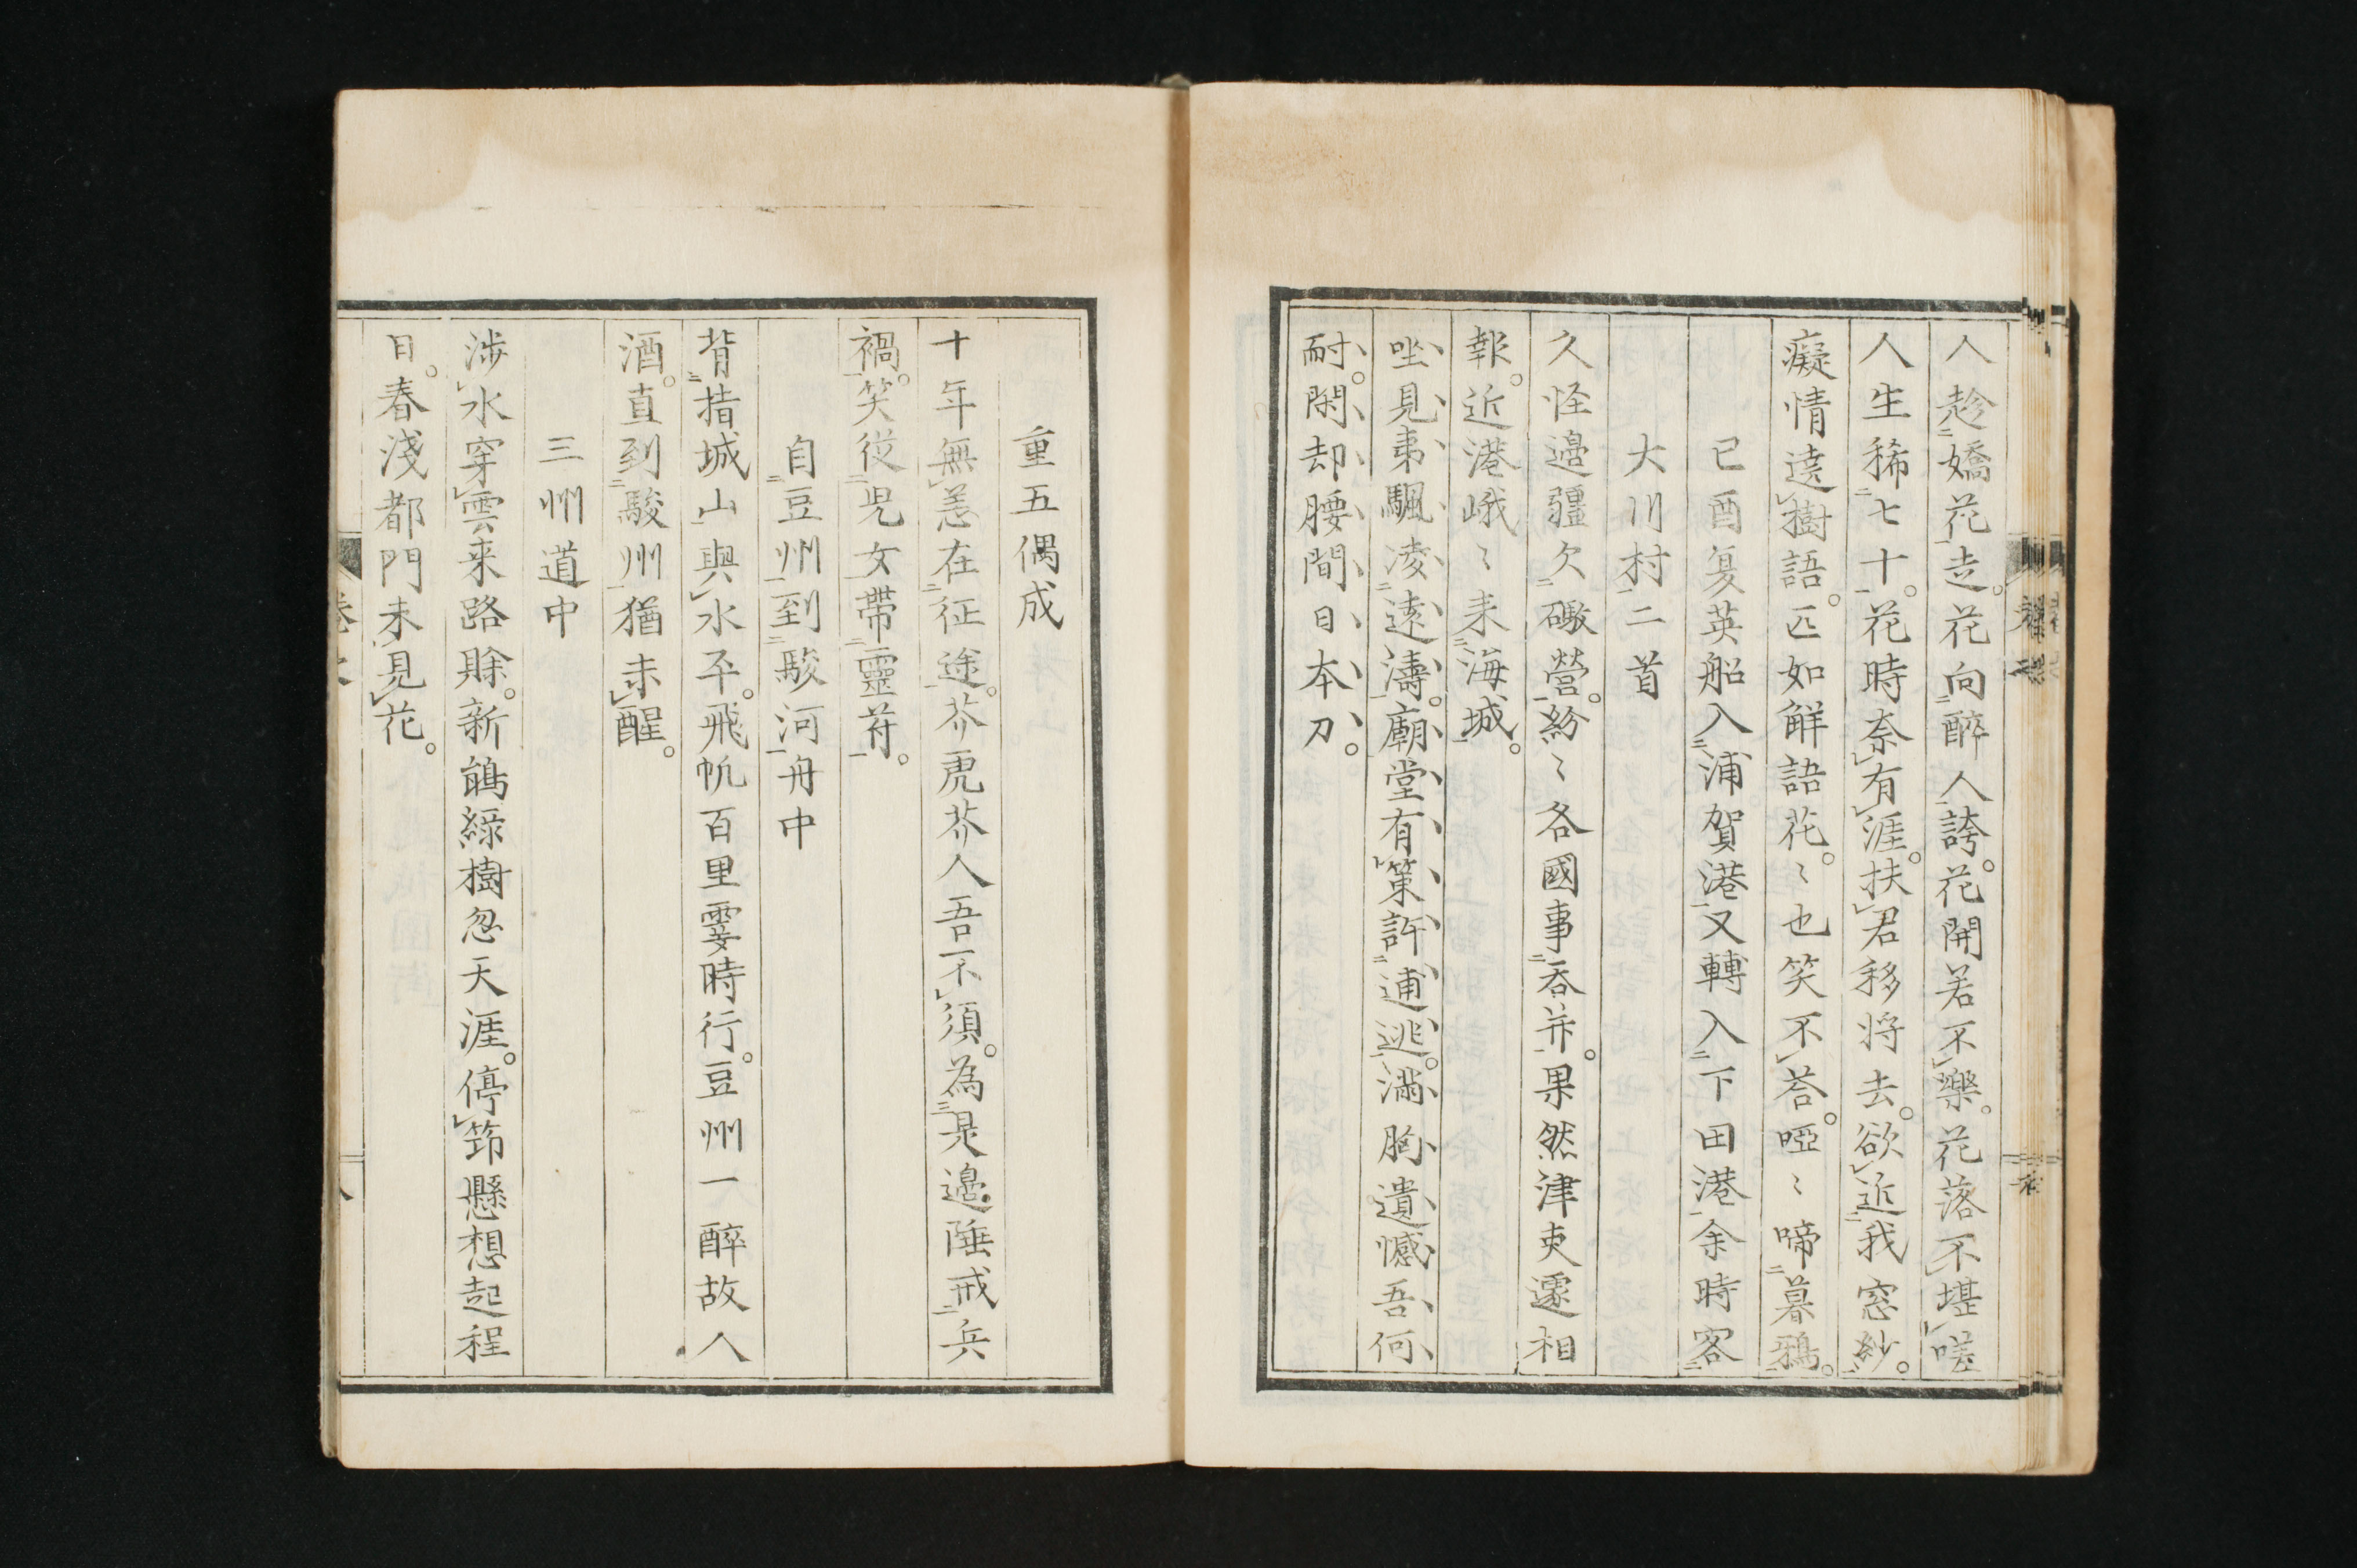 人趁嬌花走。花向醉人誇。花開若不樂。花落不堪嗟
人生稀七十。花時奈有涯。扶君移将去。欲近我窓紗。
癡情遶樹語。匹如解語花。〻也笑不荅。啞〻啼暮鴉。
己酉夏英船入浦賀港又轉入下田港余時客
大川村二首
久怪邉疆欠礮營。紛〻各國事吞并。果然津吏遽相
報。近港峨〻来海城。
坐見夷颿凌遠濤。廟堂有策許逋逃。滿胸遺憾吾何
耐。閑却腰間日本刀。
重五偶成
十年無恙在征途。芥虎芥人吾不須。為是邉陲戒兵
禍。笑從児女帶靈苻。
自豆州到駿河舟中
背指城山與水平。飛帆百里霎時行。豆州一醉故人
酒。直到駿州猶未醒。
三州道中
涉水穿雲来路賖。新鵑綠樹忽天涯。停筇懸想起程
日。春淺都門未見花。